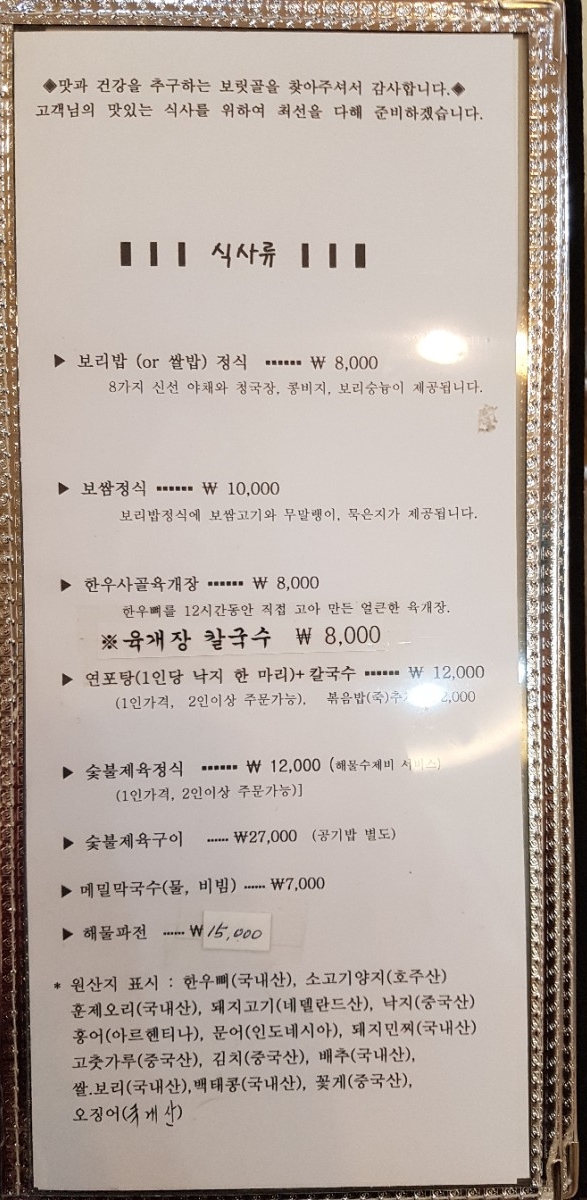 ◈맛과 건강을 추구하는 보릿골을 찾아주셔서 감사합니다.◈
고객님의 맛있는 식사를 위하여 최선을 다해 준비하겠습니다.
식사류
▶ 보리밥 (or 쌀밥) 정식 ······ ₩ 8,000
8가지 신선 야채와 청국장, 콩비지, 보리숭늉이 제공됩니다.
▶ 보쌈정식 ······ ₩ 10,000
보리밥정식에 보쌈고기와 무말랭이, 묵은지가 제공됩니다.
▶ 한우사골육개장 ······ ₩ 8,000
한우뼈를 12시간동안 직접 고아 만든 얼큰한 육개장.
※육개장 칼국수 ₩ 8,000
▶ 연포탕(1인당 낙지 한 마리)+ 칼국수 ······ ₩ 12,000
(1인가격, 2인이상 주문가능), 볶음밥(죽)추 2,000
▶ 숯불제육정식 ······ ₩ 12,000 (해물수제비 서비스)
(1인가격, 2인이상 주문가능)]
▶ 숯불제육구이 ······ ₩27,000 (공기밥 별도)
▶ 메밀막국수(물, 비빔) ······ ₩7,000
▶ 해물파전 ······ ₩ 15,000
* 원산지 표시 : 한우뼈(국내산), 소고기양지(호주산)
훈제오리(국내산), 돼지고기(네델란드산), 낙지(중국산)
홍어(아르헨티나), 문어(인도네시아), 돼지민찌(국내산)
고춧가루(중국산), 김치(중국산), 배추(국내산),
쌀.보리(국내산),백태콩(국내산), 꽃게(중국산),
오징어(